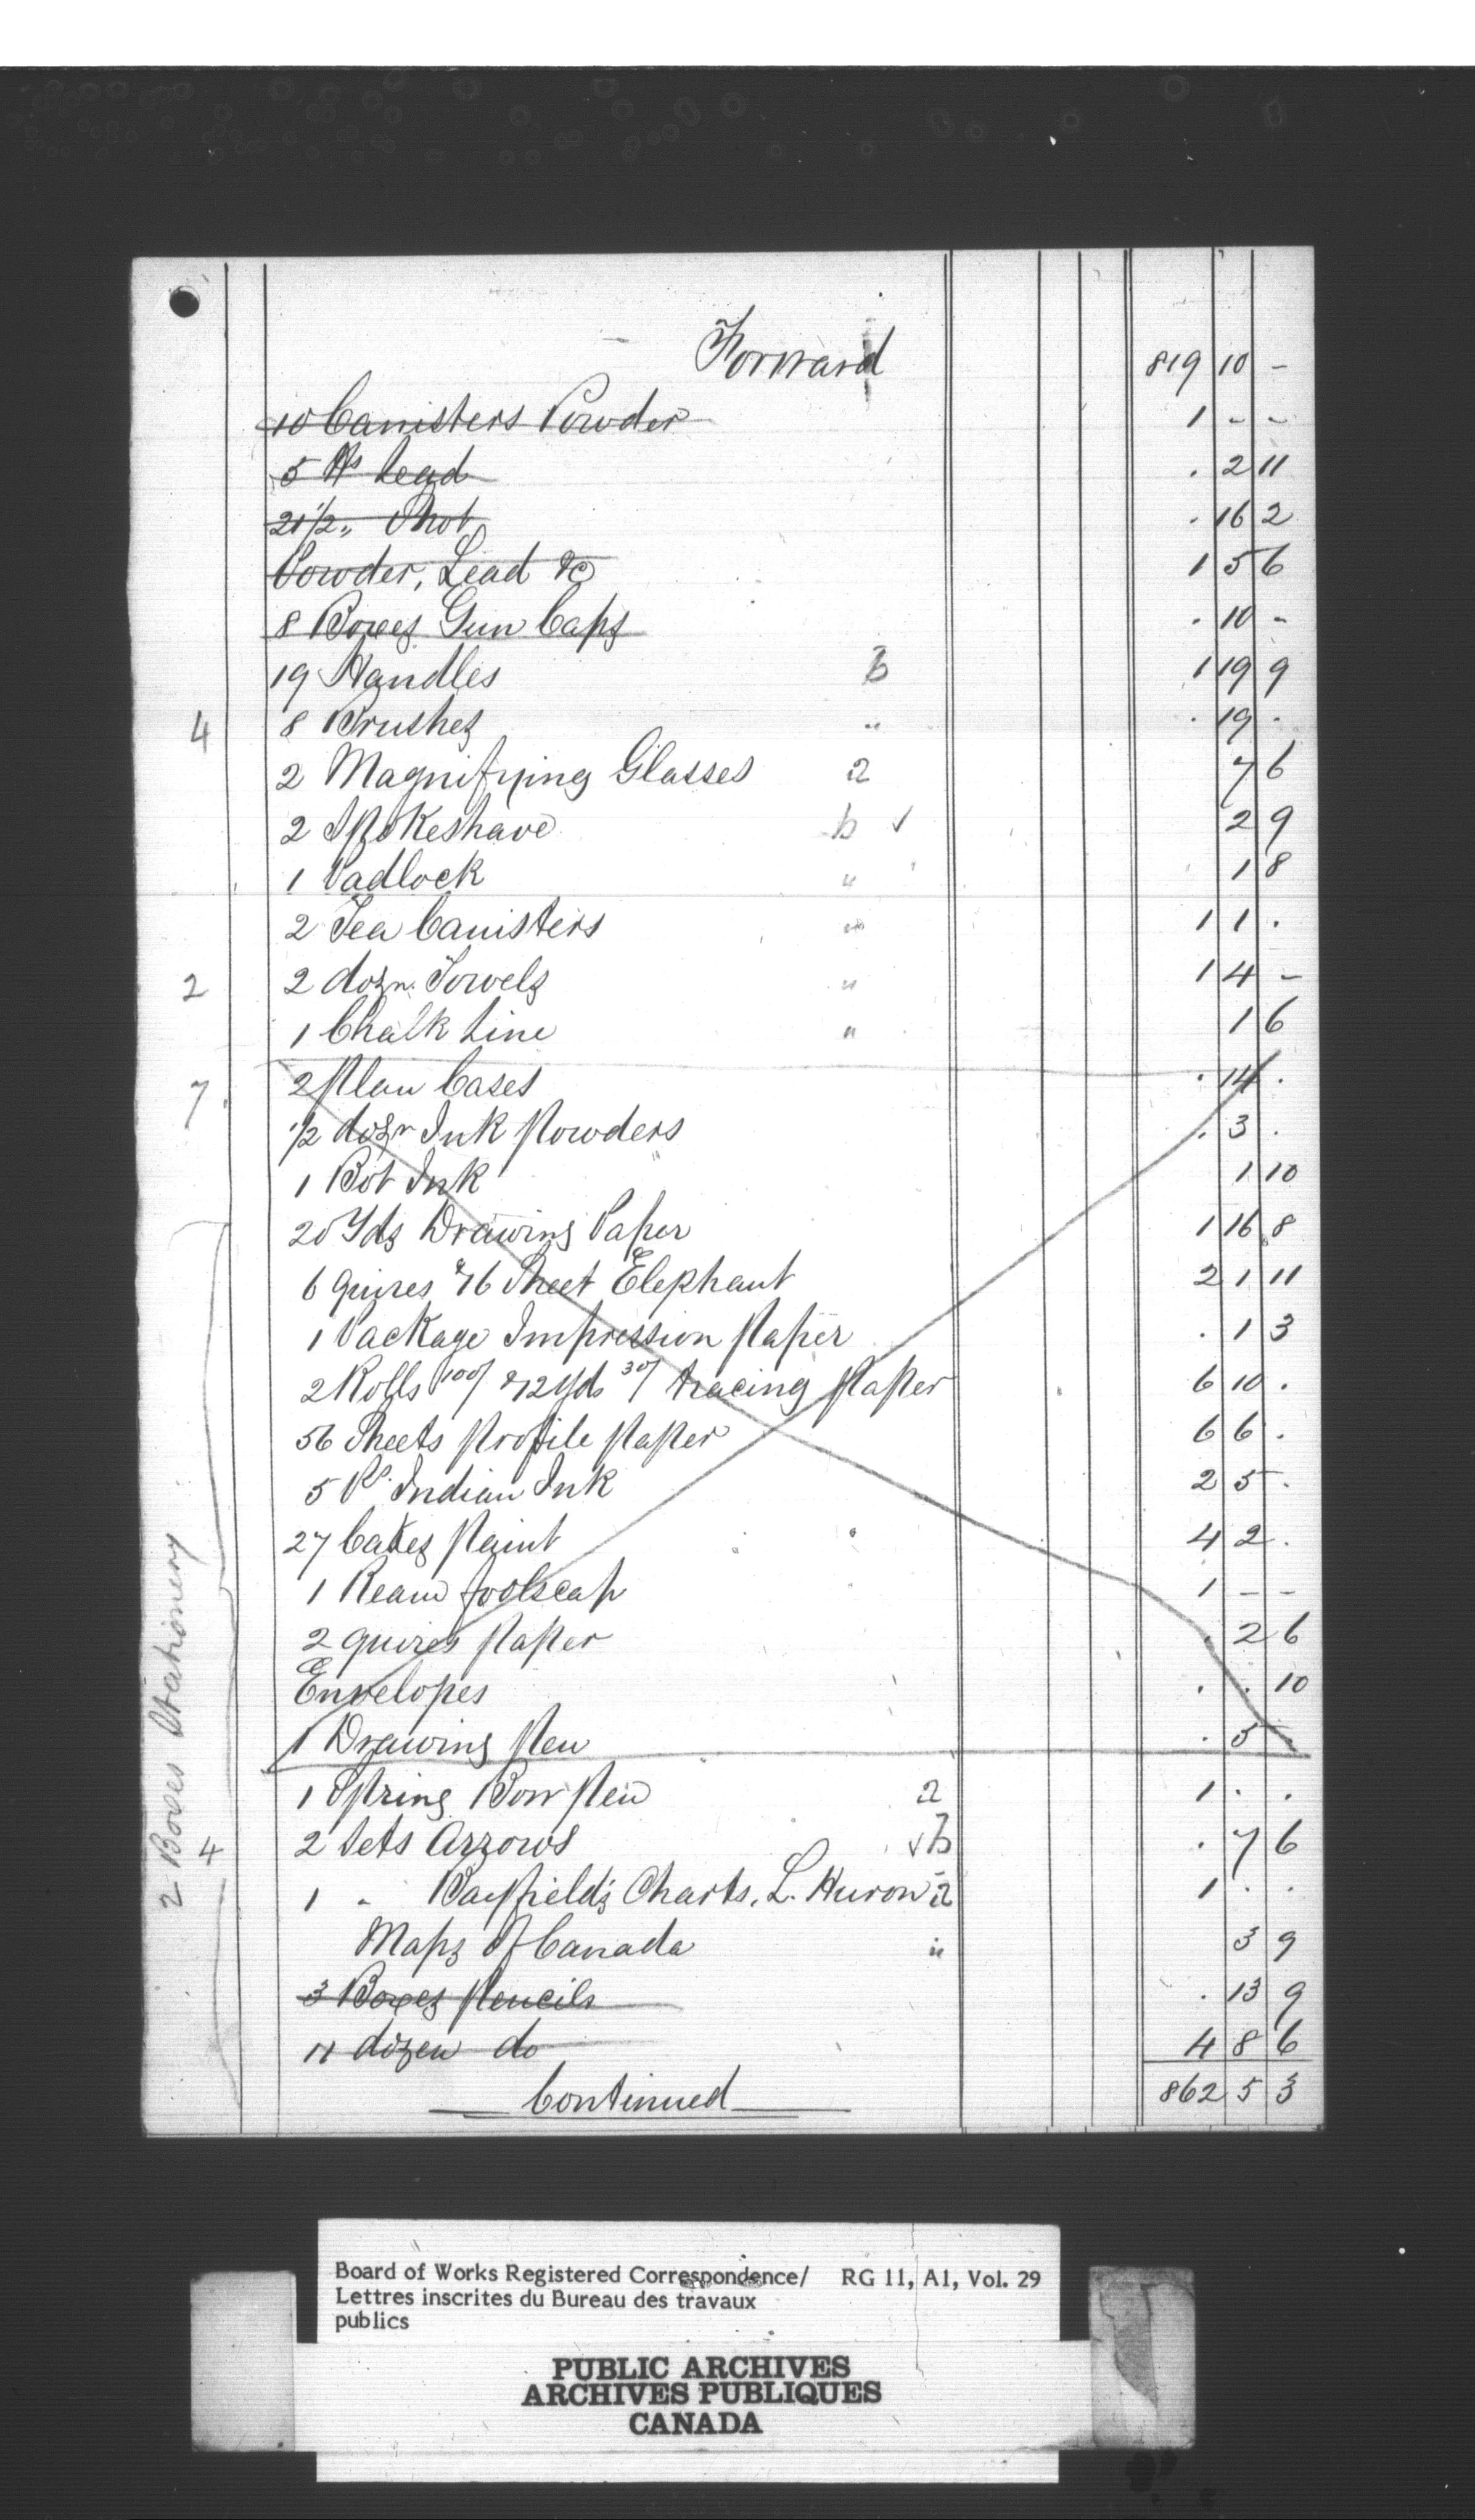 Forward 819 10 -
10 Canisters Powder 1 - -
5 lbs Lead . 2 11
21 1/2 " Shot . 16 2
Powder, Lead &c 1 5 6
8 Boxes Gun Caps . 10 -
19 Handles b 1 19 9
4 8 Brushes " . 19 .
2 Magnifying Glasses a 7 6
2 Spokeshave b ✓ 2 9
1 Padlock " 1 8
2 Tea Canisters " 1 1 .
2 2 dozn. Towels " 1 4 -
1 Chalk Line " 1 6
7. 2 Plan Cases . 14 .
1/2 dozn Ink Powders . 3 .
1 Bot Ink 1 10
20 Yds Drawing Paper 1 16 8
6 quires & 6 Sheet Elephant 2 1 11
1 Package Impression Paper . 1 3
2 Rolls 100/ & 12 yds 30/ tracing Paper 6 10 .
56 Sheets Profile Paper 6 6 .
5 Ps. Indian Ink 2 5 .
27 Cakes Paint 4 2 .
1 Ream foolscap 1 - -
2 quires Paper . 2 6
Envelopes . . 10
1 Drawing Pen . 5 .
1 Spring Bow Pen a 1 . .
4 2 Sets Arrows ✓ b . 7 6
1 " Bayfield's Charts, L. Huron a 1 . .
Maps of Canada " 3 9
3 Boxes Pencils . 13 9
11 dozen do 4 8 6
Continued 862 5 3
2 Boxes Stationery
Board of Works Registered Correspondence/ RG 11, A1, Vol. 29
Lettres inscrites du Bureau des travaux
publics
PUBLIC ARCHIVES
ARCHIVES PUBLIQUES
CANADA